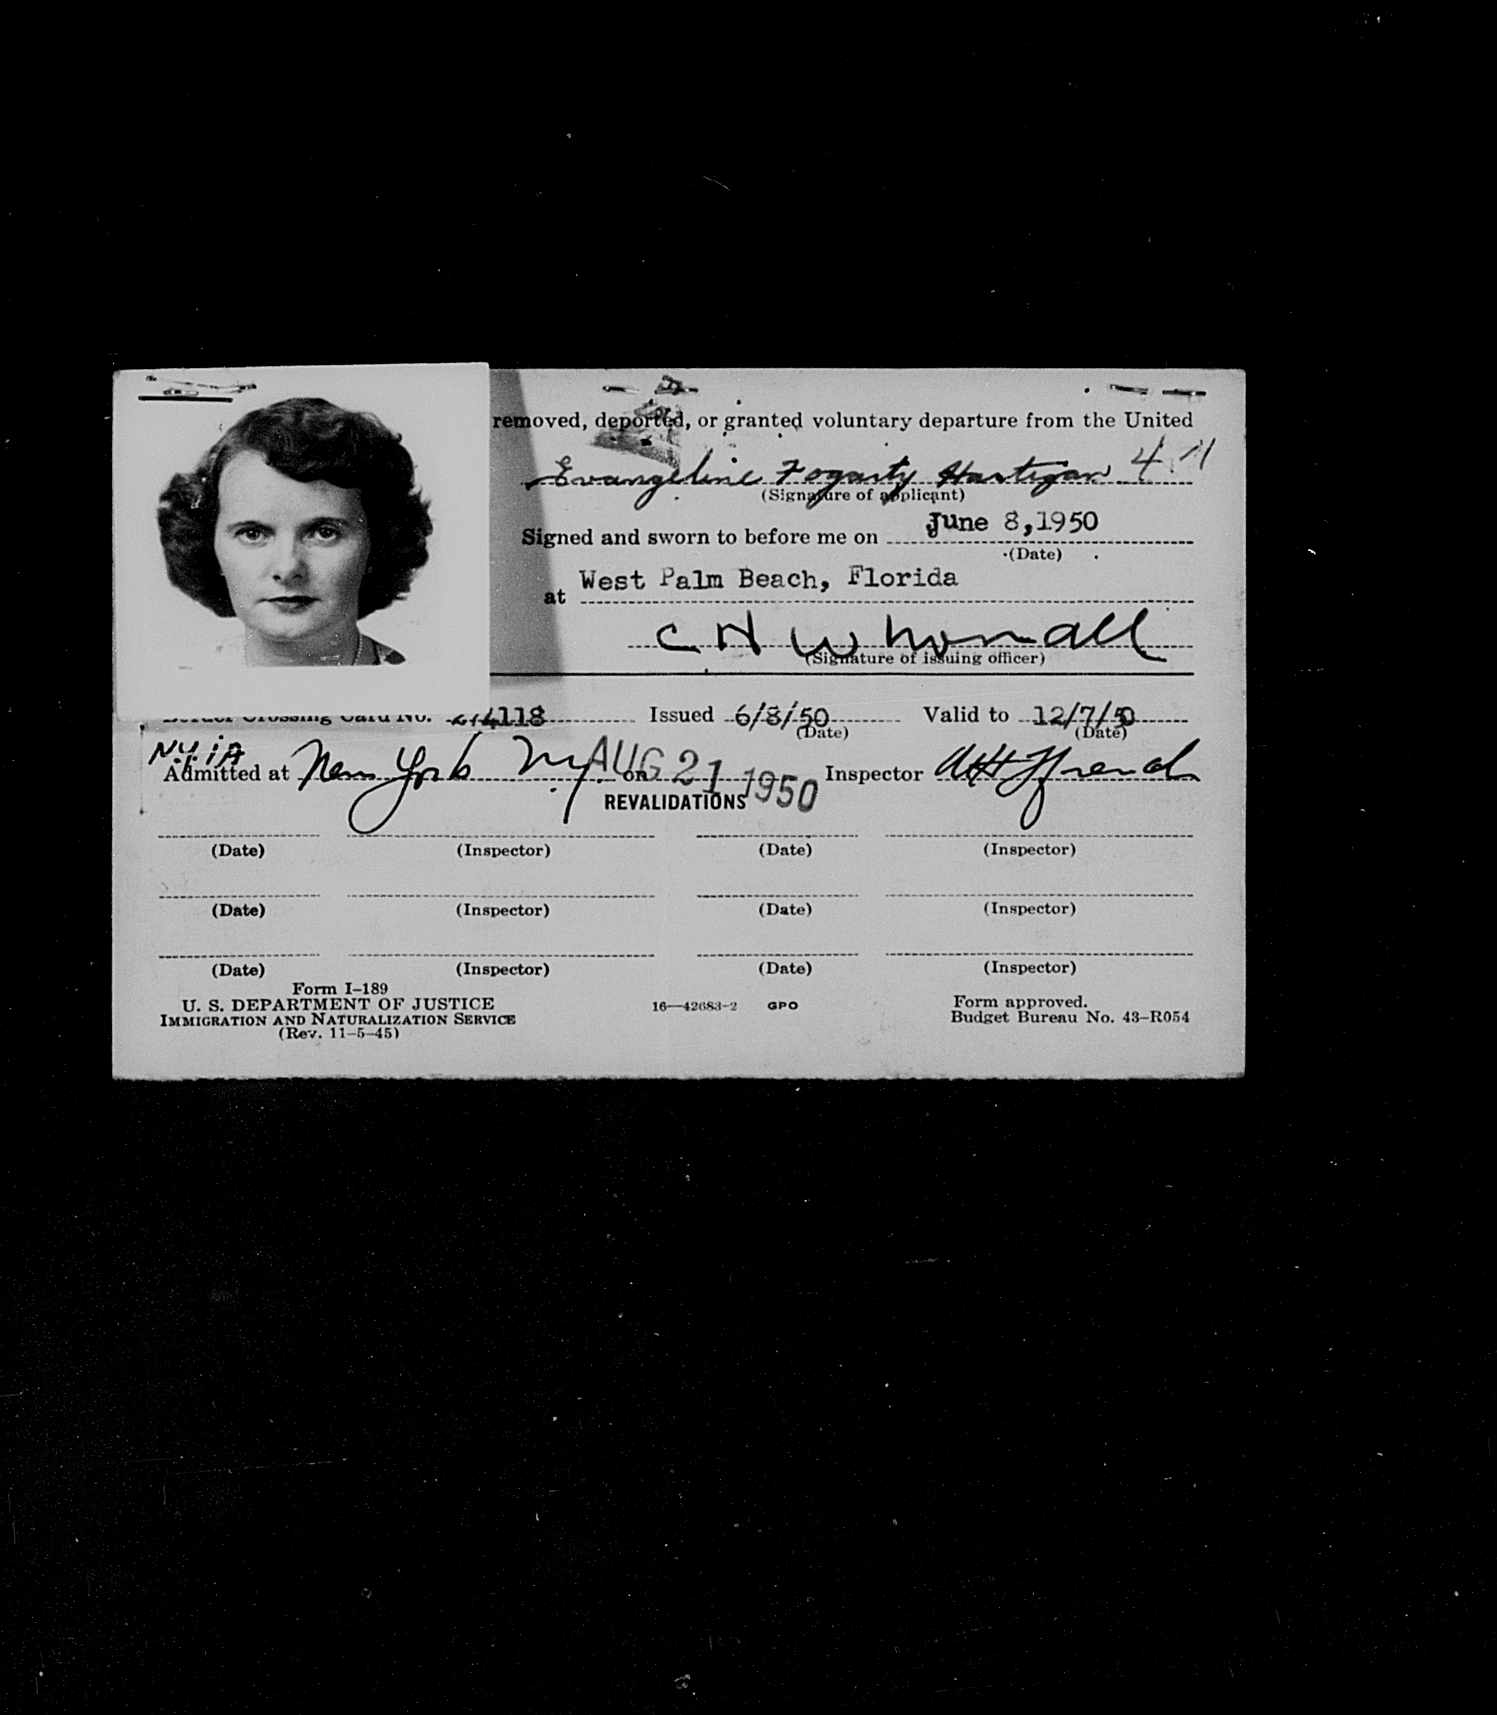 removed, deported, or granted voluntary departure from the United
Evangeline Fogarty Hartigan 4
(Signature of applicant)
Signed and sworn to before me on June 8,1950
(Date)
at West Palm Beach, Florida
C H W
(Signature of issuing officer)
Border Crossing Card No. 214118 Issued 6/8/50 Valid to 12/7/50
(Date) (Date)
N.Y.iA
Admitted at New York NY on AUG 21 1950 Inspector
REVALIDATIONS
(Date) (Inspector) (Date) (Inspector)
(Date) (Inspector) (Date) (Inspector)
(Date) (Inspector) (Date) (Inspector)
Form I-189
U. S. DEPARTMENT OF JUSTICE 16—42683-2 GPO Form approved.
IMMIGRATION AND NATURALIZATION SERVICE Budget Bureau No. 43-R054
(Rev. 11-5-45)